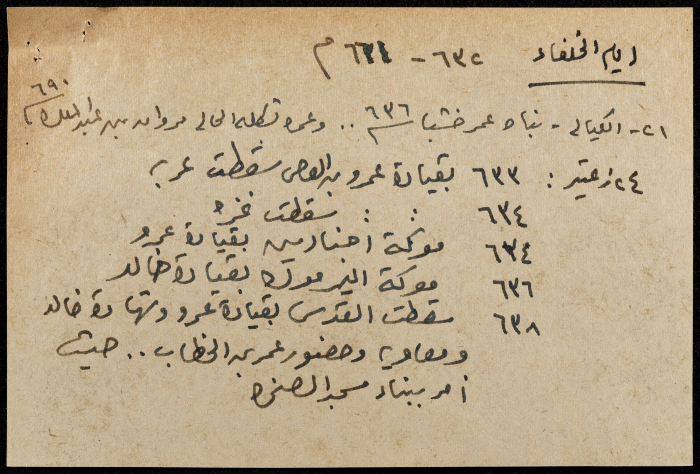 ايام الخلفاء ٦٣٢ - ٦٦١ م
٦٩٠
٢١- الكيالي - بناه عمر خشبا سـ ٦٣٦ .. وعمره بشكله الحالي مروان بن عبد الملك
٢٤ زعيتر : ٦٣٣ بقيادة عمرو بن العاص سقطت عربه
٦٣٤ : : سقطت غزه
٦٣٤ موكة اجنادين بقيادة عمرو
٦٣٦ موكة اليرموك بقيادة خالد
٦٣٨ سقطت القدس بقيادة عمرو وشهادة خالد
ومعاوية وحضور عمر بن الخطاب .. حيث
أمر ببناء مسجد الصخره